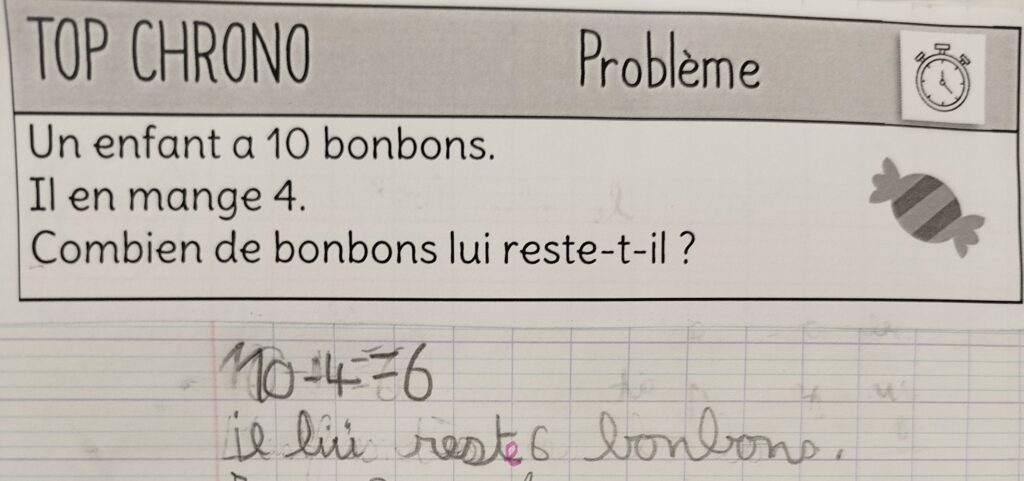 TOP CHRONO Problème
Un enfant a 10 bonbons.
Il en mange 4.
Combien de bonbons lui reste-t-il ?
10-4=6
il lui reste 6 bonbons.